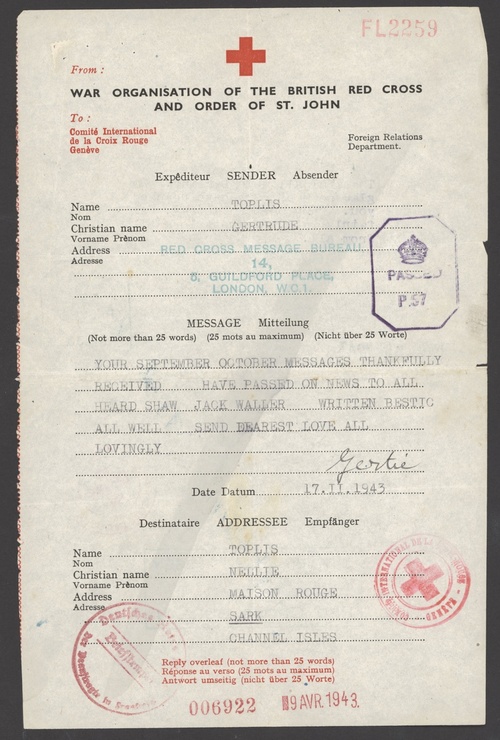 FL2259
From :
WAR ORGANISATION OF THE BRITISH RED CROSS
AND ORDER OF ST. JOHN
To :
Comité International
de la Croix Rouge
Genève
Foreign Relations
Department.
Expéditeur SENDER Absender
Name TOPLIS
Nom
Christian name GERTRUDE
Vorname Prénom
Address RED CROSS MESSAGE BUREAU
Adresse
14,
5, GUILDFORD PLACE,
LONDON, W.C.1.
PASSED
P.57
MESSAGE Mitteilung
(Not more than 25 words) (25 mots au maximum) (Nicht über 25 Worte)
YOUR SEPTEMBER OCTOBER MESSAGES THANKFULLY
RECEIVED HAVE PASSED ON NEWS TO ALL
HEARD SHAW JACK WALLER WRITTEN BESTIC
ALL WELL SEND DEAREST LOVE ALL
LOVINGLY
Gertie
Date Datum 17.II.1943
Destinataire ADDRESSEE Empfänger
Name TOPLIS
Nom
Christian name NELLIE
Vorname Prénom
Address MAISON ROUGE
Adresse
SARK
CHANNEL ISLES
Reply overleaf (not more than 25 words)
Réponse au verso (25 mots au maximum)
Antwort umseitig (nicht über 25 Worte)
006922
9 AVR. 1943